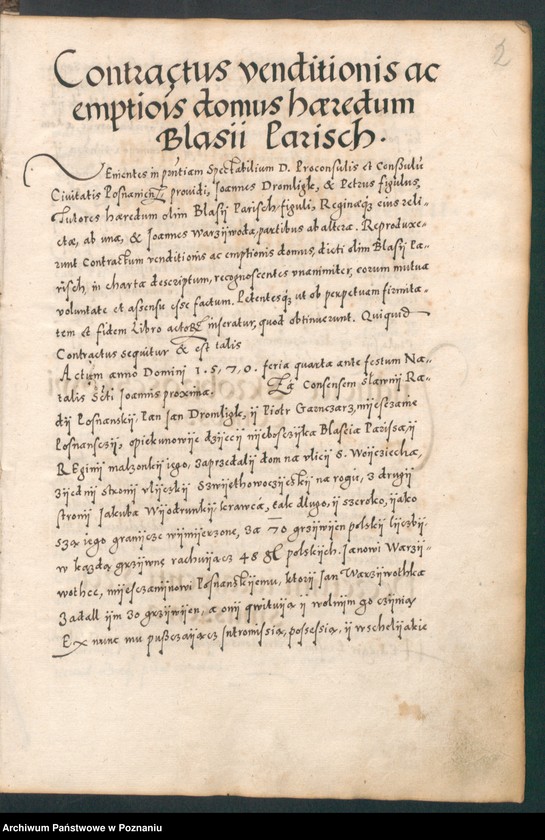 2
Contractus venditionis ac
emptiois domus hæredum
Blasii Parisch.
VEnientes in pñtiam Spectabilium D. Proconsulis et Consulũ
Civitatis Posnanieñ providi, Joannes Dromligk, & Petrus figulus,
Tutores hæredum olim Blasij Parisch figuli, Reginæq; eius reli-
ctæ, ab una, & Joannes Warzijwoda, partibus ab altera. Reproduxe-
runt Contractum venditionis ac emptionis domus, dicti olim Blasij Pa-
risch, in charta descriptum, recognoscentes unanimiter, eorum mutua
voluntate et assensu esse factum. Petentesq; ut ob perpetuam firmita-
tem et fidem Libro actoꝝ inseratur, quod obtinuerunt. Quiquid
Contractus sequitur & est talis
Actum anno Domini 1.5.7.0. feria quarta ante festum Na-
talis Scti Joannis proxima. Za Consensem slawnij Ra-
dij Posnanskij, Pan Jan Dromligk, ij Piotr Garnczarz, mijesczanie
Posnansczij, opiekunowije dzijecij nijebosczijka Blascia Parissa, ij
REginij malzonkij iego, zaprzedalij dom na vlicij S. Woijciecha,
zijednij stronij vlijczkij Szwijethowoczijeskij na rogu, z drugij
stronij Jakuba Wijodrunkij krawcza, tak dlugo, ij szeroko, ijako
sza iego granijcze wijmijerzone, za 70 grzijwijen polskij liczbij.
w kazda grzijwne rachuijacz 48 gl polskijch. Janowi Warzij-
wothce, mijesczanijnowi Posnanskijemu, ktorij Jan Warzijwothka
zadall ijm 30 grzijwijen, a onij qwituija ij wolnijm go czijnia
Ex nunc mu puszczaijacz Intromissia, possessia, ij wschelijakie
Archiwum Państwowe w Poznaniu